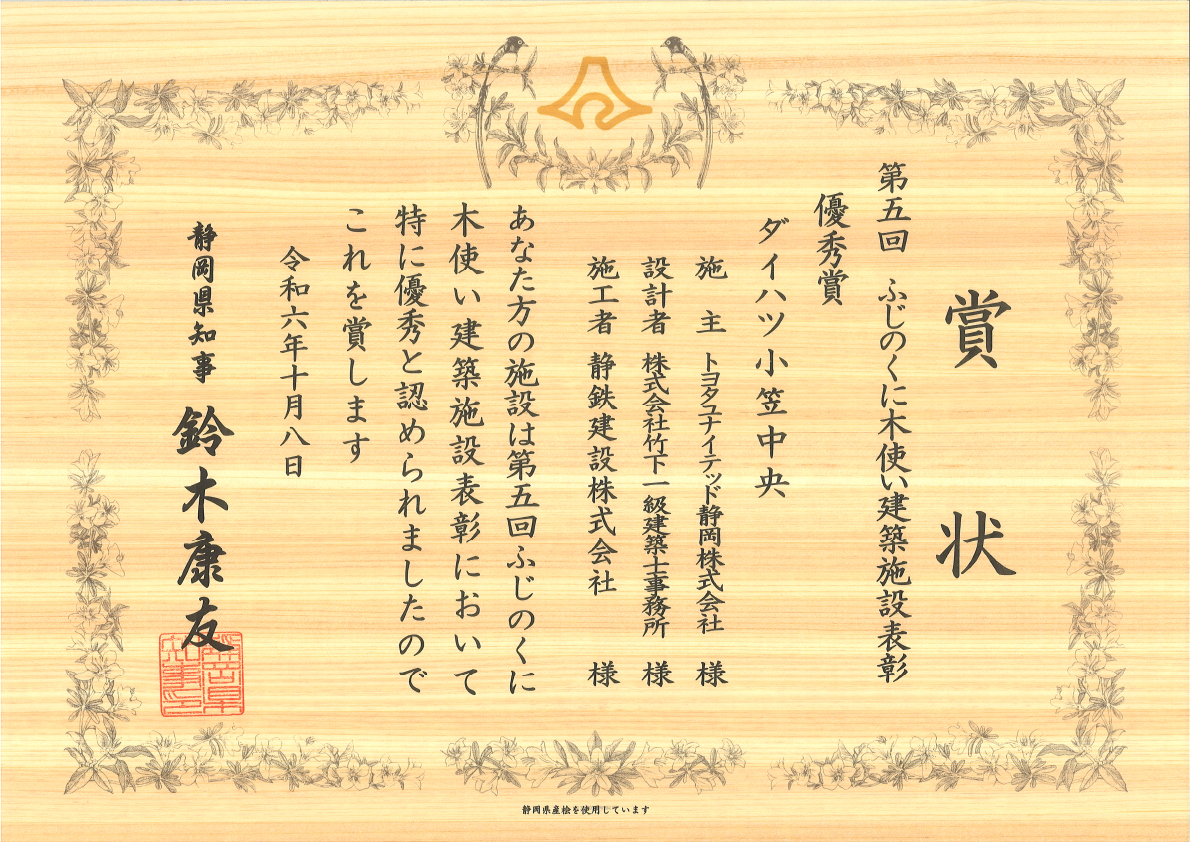 賞状
第五回 ふじのくに木使い建築施設表彰
優秀賞
ダイハツ小笠中央
施主 トヨタユナイテッド静岡株式会社 様
設計者 株式会社竹下一級建築士事務所 様
施工者 静鉄建設株式会社 様
あなた方の施設は第五回ふじのくに
木使い建築施設表彰において
特に優秀と認められましたので
これを賞します
令和六年十月八日
静岡県知事 鈴木康友
静岡県知事之印
静岡県産桧を使用しています